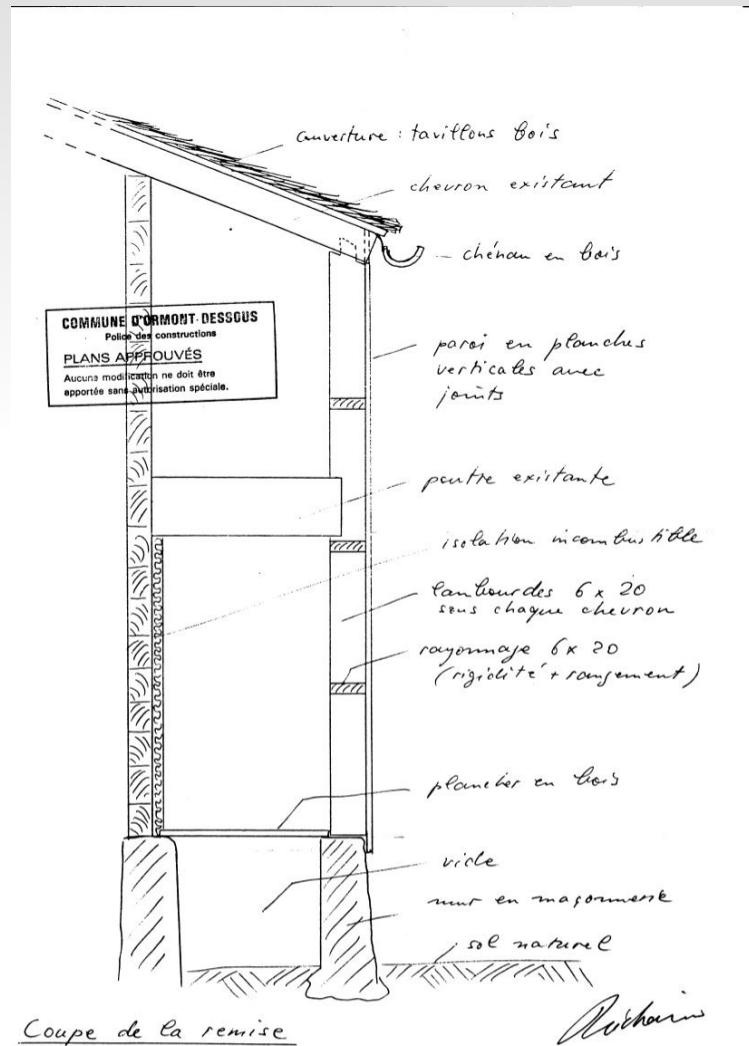 couverture : tavillons bois
chevron existant
chénau en bois
COMMUNE D'ORMONT-DESSOUS
Police des constructions
PLANS APPROUVÉS
Aucune modification ne doit être
apportée sans autorisation spéciale.
paroi en planches
verticales avec
joints
poutre existante
isolation incombustible
lambourdes 6 x 20
sous chaque chevron
rayonnage 6 x 20
(rigidité + rangement)
plancher en bois
vide
mur en maçonnerie
sol naturel
Coupe de la remise